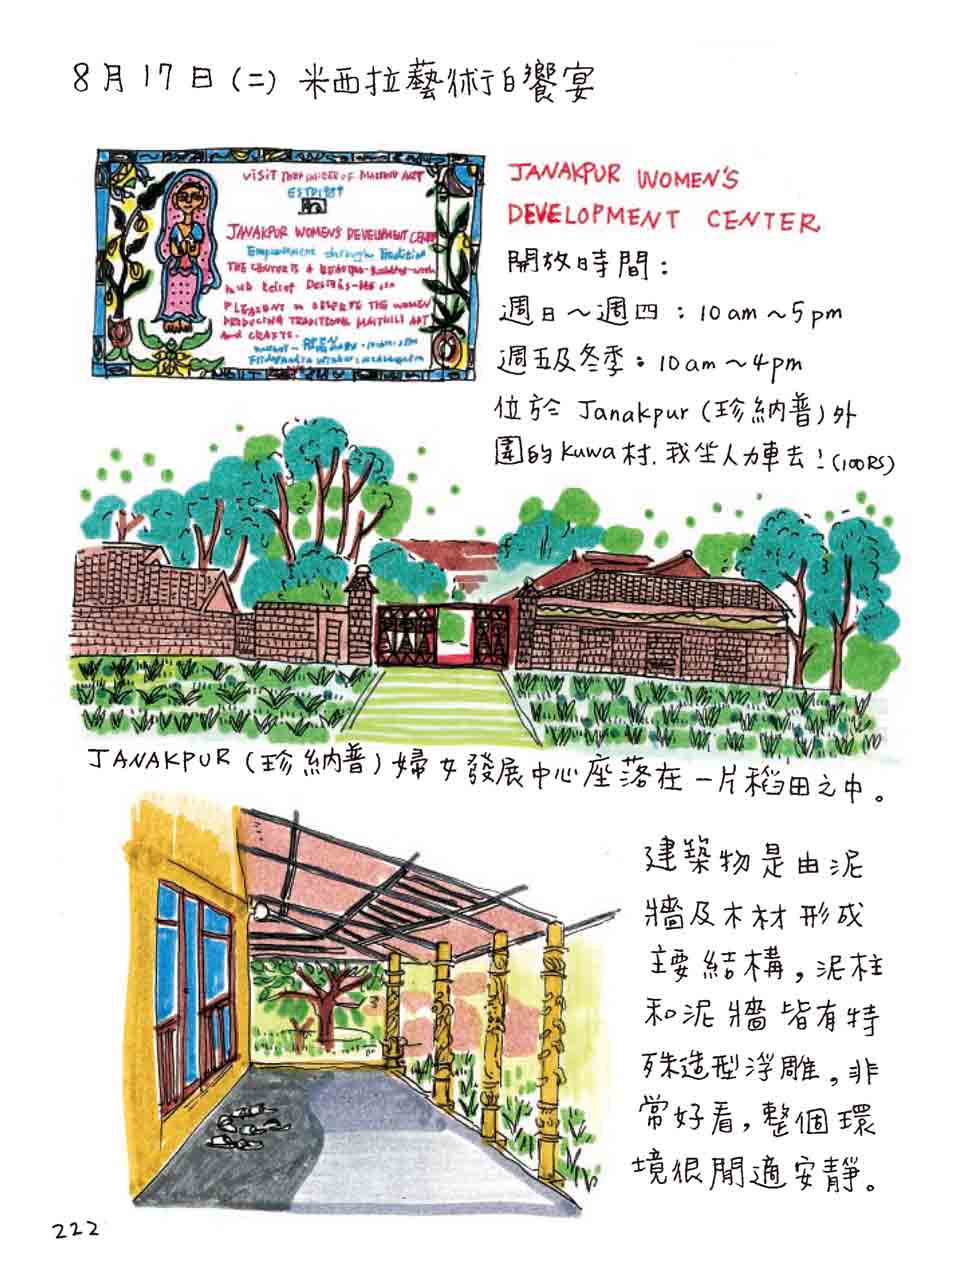 8月17日(二) 米西拉藝術的饗宴
VISIT THE OF MAITHILI ART
ESTD 1989
JANAKPUR WOMEN'S DEVELOPMENT CENTER
Empowerment through Tradition
THE CENTER IS A
PLEASANT OBSERVE THE WOMEN
PRODUCING TRADITIONAL MAITHILI ART
AND CRAFTS.
JANAKPUR WOMEN'S
DEVELOPMENT CENTER
開放時間:
週日~週四:10am~5pm
週五及冬季:10am~4pm
位於 Janakpur(珍納普)外
圍的Kuwa村.我坐人力車去!(100RS)
JANAKPUR(珍納普)婦女發展中心座落在一片稻田之中。
建築物是由泥
牆及木材形成
主要結構,泥柱
和泥牆皆有特
殊造型浮雕,非
常好看,整個環
境很閒適安靜。
222